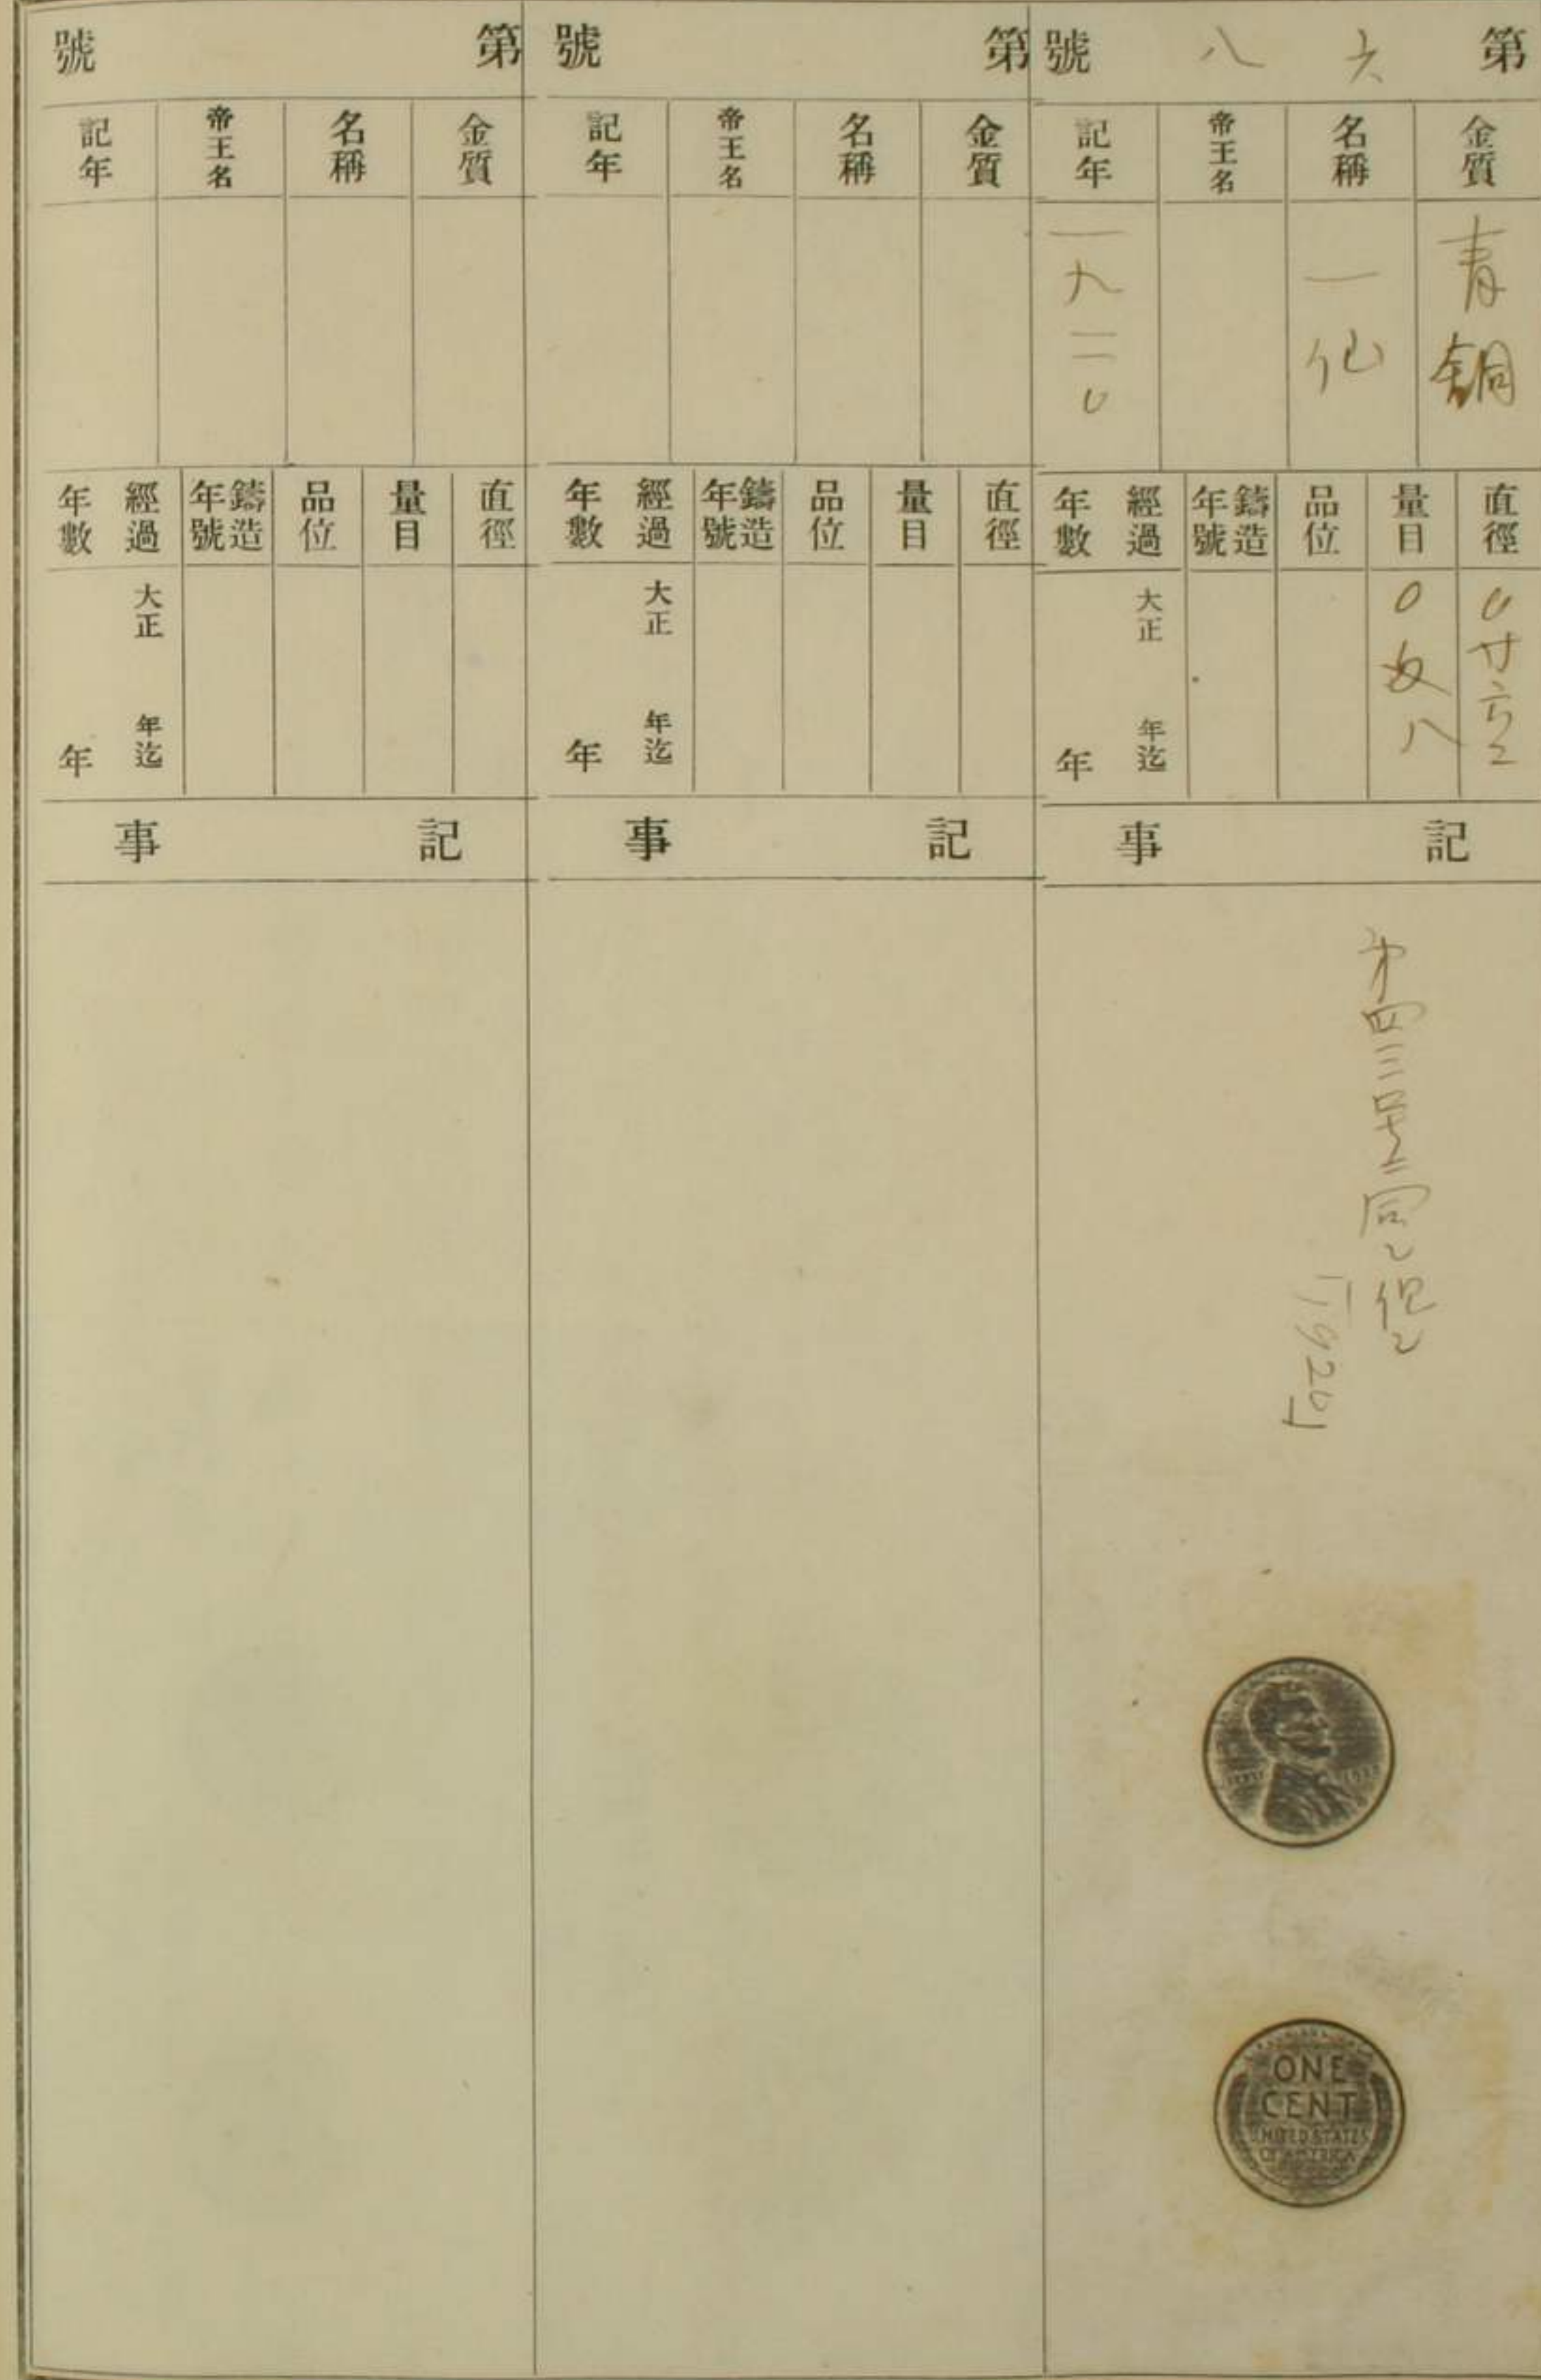 第六八號
金質
青銅
名稱
一仙
帝王名
記年
一九二〇
直徑
量目
品位
鑄造年號
經過年數
大正 年迄
年
記事
第四三号ニ同シ但シ
「1920」
ONE
CENT
UNITED STATES
OF AMERICA
第 號
金質
名稱
帝王名
記年
直徑
量目
品位
鑄造年號
經過年數
大正 年迄
年
記事
第 號
金質
名稱
帝王名
記年
直徑
量目
品位
鑄造年號
經過年數
大正 年迄
年
記事